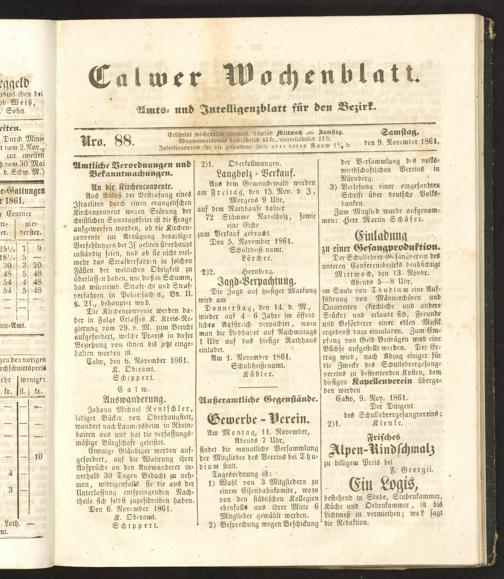 Calwer Wochenblatt.
Amts- und Intelligenzblatt für den Bezirk.
Nro. 88.
Erscheint wöchentlich zweimal, nämlich Mittwoch und Samstag.
Samstag,
den 9. November 1861.
Amtliche Verordnungen und
Bekanntmachungen.
An die Kirchenconvente.
Aus Anlaß der Bestrafung eines
Israeliten durch einen evangelischen
Kirchenconvent wegen Störung der
christlichen Sonntagsfeier ist die Frage
aufgeworfen worden, ob die Kirchen-
convente zur Abrügung derartiger
Verfehlungen der Israeliten überhaupt
zuständig seien, und ob sie nicht viel-
mehr das Strafverfahren in solchen
Fällen der weltlichen Obrigkeit zu
überlassen haben, wie dieß in Schumm,
das württemb. Strafrecht und Straf-
verfahren in Polizeisachen, Bd. II.
§. 21., behauptet wird.
Die Kirchenconvente werden da-
her in Folge Erlasses K. Kreis-Re-
gierung vom 29. v. M. zum Bericht
aufgefordert, welche Praxis in dieser
Beziehung von ihnen bis jetzt einge-
halten worden ist.
Calw, den 6. November 1861.
K. Oberamt.
Schippert.
Calw.
Auswanderung.
Johann Michael Rentschler,
lediger Bäcker von Oberhaugstett,
wandert nach Laumersheim in Rhein-
baiern aus und hat die verfassungs-
mäßige Bürgschaft geleistet.
Etwaige Gläubiger werden auf-
gefordert, auf die Wahrung ihrer
Ansprüche an den Auswanderer in-
nerhalb 30 Tagen Bedacht zu neh-
men, widrigenfalls sie die aus der
Unterlassung entspringenden Nach-
theile sich selbst zuzuschreiben haben.
Den 6. November 1861.
K. Oberamt.
Schippert.
2)1. Oberkollwangen.
Langholz-Verkauf.
Aus dem Gemeindewald werden
am Freitag, den 15. Nov. d. J.,
Morgens 9 Uhr,
auf dem Rathhause dahier
72 Stämme Nadelholz, sowie
eine Eiche
zum Verkauf gebracht.
Den 5. November 1861.
Schultheiß
Lörcher.
2)2. Hornberg.
Jagd-Verpachtung.
Die Jagd auf hiesiger Markung
wird am
Donnerstag, den 14. d. M.,
wieder auf 4–6 Jahre im öffent-
lichen Aufstreich verpachtet, wozu
man die Liebhaber auf Nachmittags
1 Uhr auf das hiesige Rathhaus
einladet.
Am 1. November 1861.
Schultheißenamt.
Kübler.
Außeramtliche Gegenstände.
Gewerbe-Verein.
Am Montag, 11. November,
Abends 7 Uhr,
findet die monatliche Versammlung
der Mitglieder des Vereins bei Thu-
dium statt.
Tagesordnung ist:
1) Wahl von 3 Mitgliedern zu
einem Eisenbahnkomite, wozu
von den städtischen Kollegien
ebenfalls aus ihrer Mitte 6
Mitglieder gewählt werden.
2) Besprechung wegen Beschickung
der Versammlung des volks-
wirthschaftlichen Vereins in
Nürnberg.
3) Verlesung einer eingesandten
Schrift über deutsche Volks-
banken.
Zum Mitglied wurde aufgenom-
men: Herr Martin Schäfer.
Einladung
zu einer Gesangproduktion.
Der Schullehrer-Gesangverein des
unteren Conferenzbezirks beabsichtigt
Mittwoch, den 13. Novbr.
Abends 5—8 Uhr,
im Saale von Thudium eine Auf-
führung von Männerchören und
Quartetten (kirchliche und andere
Stücke) und erlaubt sich, Freunde
und Beförderer einer edlen Musik
ergebenst dazu einzuladen. Zum Em-
pfang von Geld Beiträgen wird eine
Büchse aufgestellt werden. Der Er-
trag wird, nach Abzug einiger für
die Zwecke des Schullehrergesang-
vereins zu bestreitenden Kosten, dem
hiesigen Kapellenverein überge-
ben werden.
Calw, 9. Nov. 1861.
Der Dirigent
des Schullehrergesangvereins:
2)1. Kienle.
Frisches
Alpen-Rindschmalz
zu billigem Preis bei
F. Georgii.
Ein Logis,
bestehend in Stube, Stubenkammer,
Küche und Oehrnkammer, ist bis
Lichtmeß zu vermiethen; wo? sagt
die Redaktion.